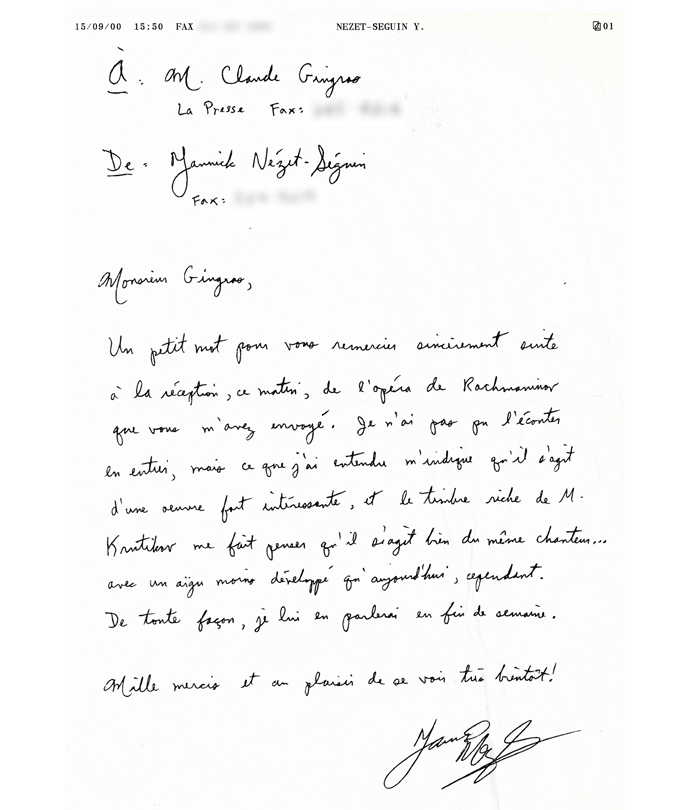 15/09/00 15:50 FAX NEZET-SEGUIN Y. 01
À : M. Claude Gingras
La Presse Fax:
De : Yannick Nézet-Séguin
Fax:
Monsieur Gingras,
Un petit mot pour vous remercier sincèrement suite
à la réception, ce matin, de l'opéra de Rachmaninov
que vous m'avez envoyé. Je n'ai pas pu l'écouter
en entier, mais ce que j'ai entendu m'indique qu'il s'agit
d'une oeuvre fort intéressante, et le timbre riche de M.
Krutikov me fait penser qu'il s'agit bien du même chanteur...
avec un aigu moins développé qu'aujourd'hui, cependant.
De toute façon, je lui en parlerai en fin de semaine.
Mille mercis et au plaisir de se voir très bientôt!